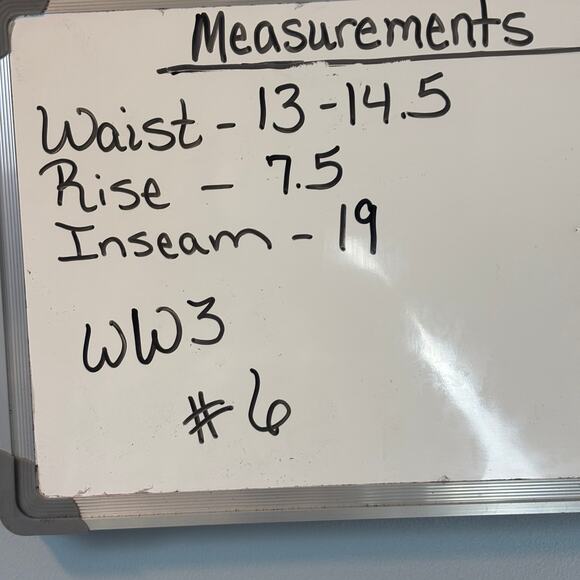 Measurements
Waist - 13 - 14.5
Rise - 7.5
Inseam - 19
WW3
#6